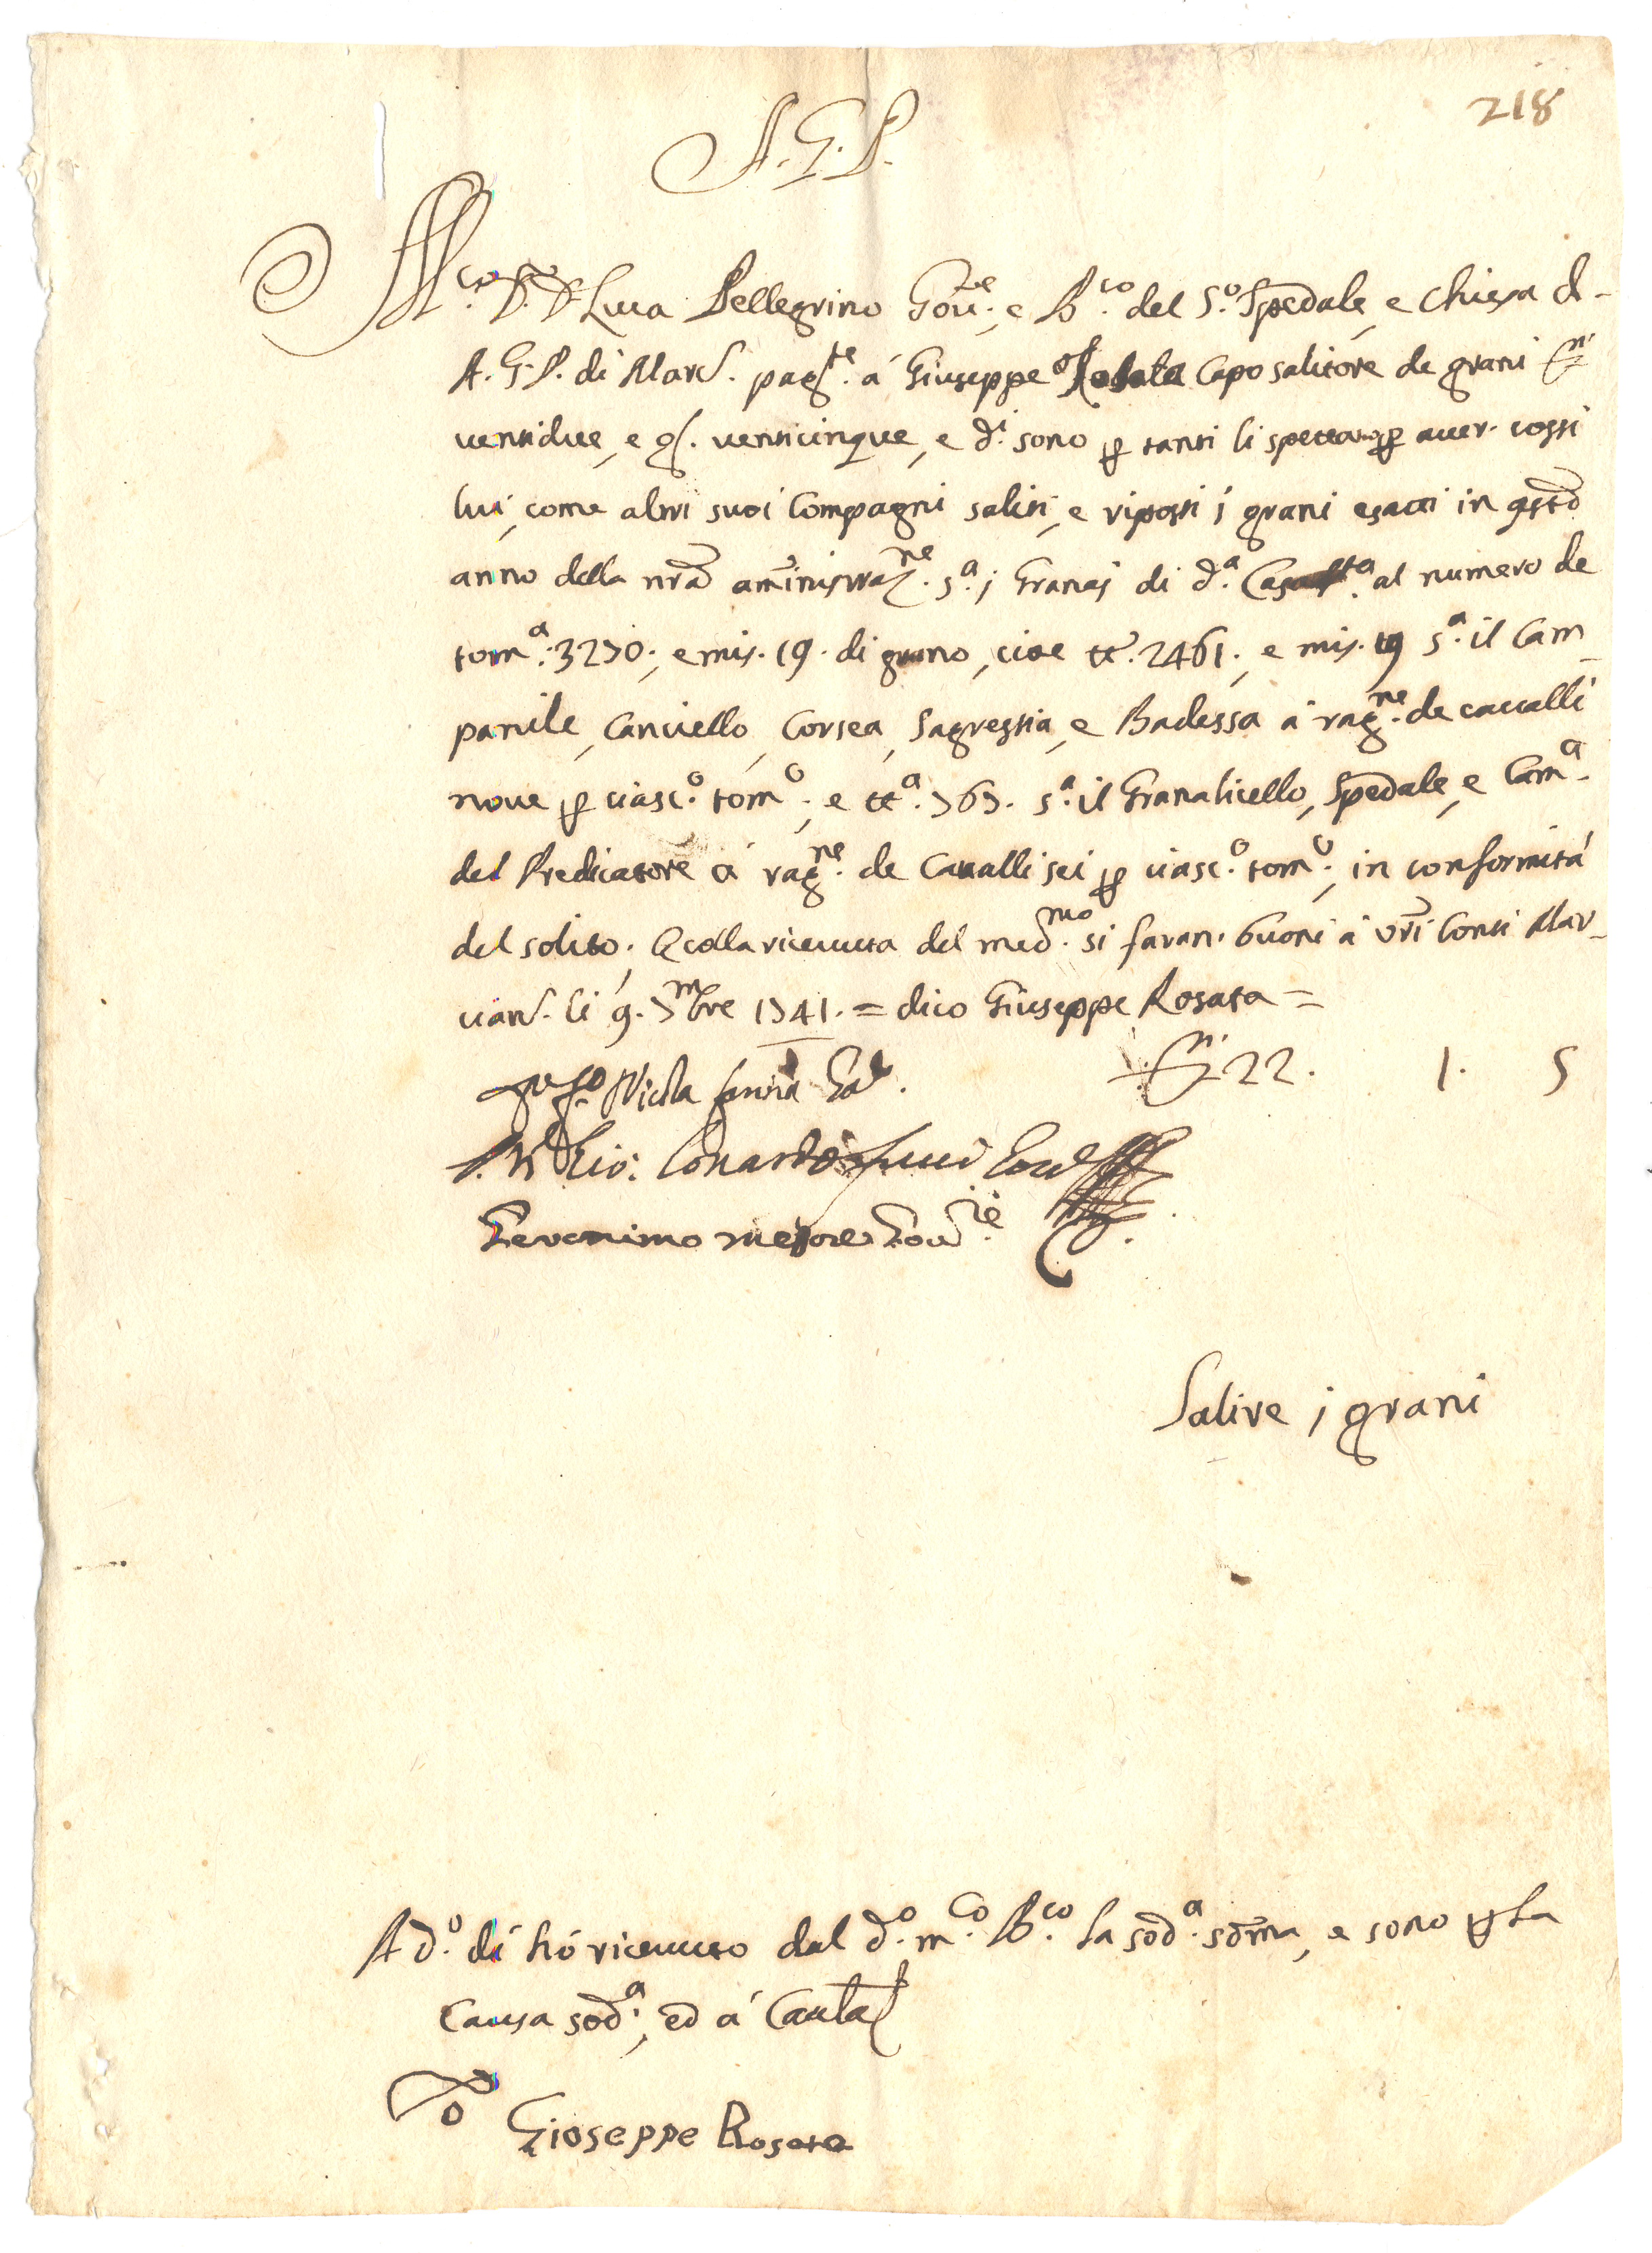 218
A. G. P.
M.co D. D. Luca Pellegrino Gov.re, e B.co del S.o Spedale, e Chiesa di
A. G. P. di Marc. pag.te á Giuseppe Rosata Capo salitore de grani D.ni
ventidue, e g. venticinque, e d.i sono p tanti li spettano p aver cossi
lui, come altri suoi Compagni saliti, e riposti i grani esatti in qsto
anno della nra amministraz.ne s.a i Granaj di d.a Casa s.ta al numero de
tom.a 3270., e mis. 19. di grano, cioe tt. 2461., e mis. 19 s.a il Cam_
panile, Cancello, Corsea, Sagrestia, e Badessa á rag.ne de cavalli
nove p ciasc.o tom.o, e tt.a 767. s.a il Granalicello, Spedale, e Cam.a
del Predicatore á rag.ne de Cavalli sei p ciasc.o tom.o, in conformitá
del solito. E colla ricevuta del med.mo si faran. buoni á vri Conti Mar_
cian. li 9. 7mbre 1741. = dico Giuseppe Rosata =
D.ni 22. 1. 5
Nicola Gov.
Gio: Gov.
Geronimo Gov.re
Salire i grani
A d.o dí hó ricevuto dal d.o m.co B.co la sod.a somma, e sono p la
Causa sod.a, ed á Cautela
Io Gioseppe Rosata